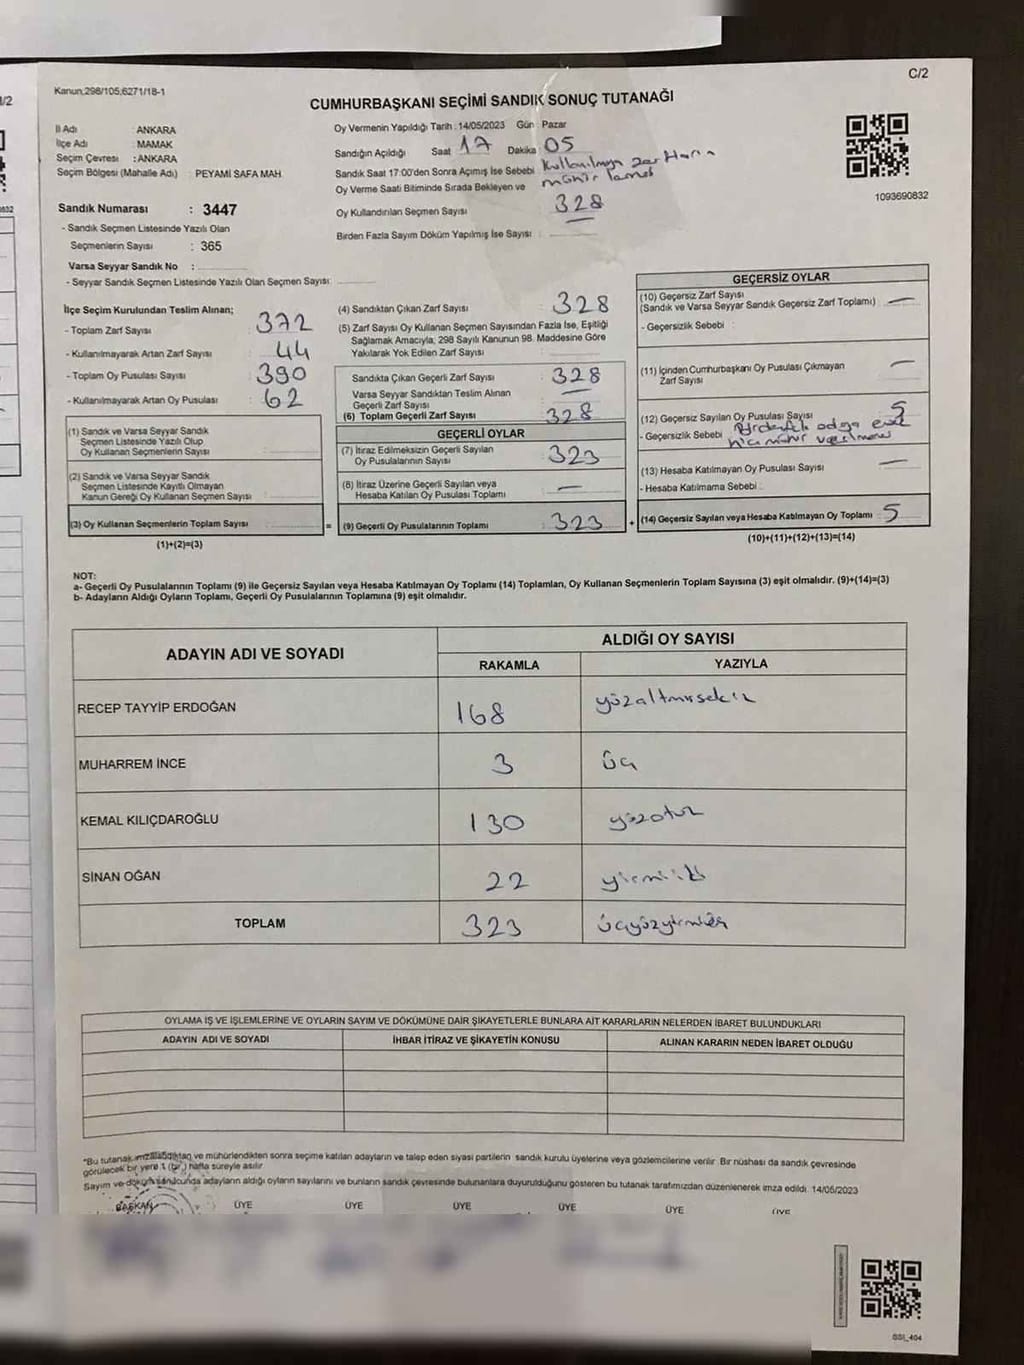 C/2
Kanun;298/105;6271/18-1
CUMHURBAŞKANI SEÇİMİ SANDIK SONUÇ TUTANAĞI
İl Adı : ANKARA
İlçe Adı : MAMAK
Seçim Çevresi : ANKARA
Seçim Bölgesi (Mahalle Adı) : PEYAMİ SAFA MAH.
Oy Vermenin Yapıldığı Tarih :14/05/2023 Gün : Pazar
Sandığın Açıldığı Saat 17 Dakika 05
Sandık Saat 17:00'den Sonra Açımış İse Sebebi Kullanılmayan zarfların
Oy Verme Saati Bitiminde Sırada Bekleyen ve
Oy Kullandırılan Seçmen Sayısı 328
Birden Fazla Sayım Döküm Yapılmış İse Sayısı :
1093690832
Sandık Numarası : 3447
- Sandık Seçmen Listesinde Yazılı Olan
Seçmenlerin Sayısı : 365
Varsa Seyyar Sandık No :
- Seyyar Sandık Seçmen Listesinde Yazılı Olan Seçmen Sayısı:
İlçe Seçim Kurulundan Teslim Alınan;
- Toplam Zarf Sayısı : 372
- Kullanılmayarak Artan Zarf Sayısı : 44
- Toplam Oy Pusulası Sayısı : 390
- Kullanılmayarak Artan Oy Pusulası : 62
(1) Sandık ve Varsa Seyyar Sandık
Seçmen Listesinde Yazılı Olup
Oy Kullanan Seçmenlerin Sayısı :
(2) Sandık ve Varsa Seyyar Sandık
Seçmen Listesinde Kayıtlı Olmayan
Kanun Gereği Oy Kullanan Seçmen Sayısı :
(3) Oy Kullanan Seçmenlerin Toplam Sayısı : =
(1)+(2)=(3)
(4) Sandıktan Çıkan Zarf Sayısı : 328
(5) Zarf Sayısı Oy Kullanan Seçmen Sayısından Fazla İse, Eşitliği
Sağlamak Amacıyla; 298 Sayılı Kanunun 98. Maddesine Göre
Yakılarak Yok Edilen Zarf Sayısı :
Sandıkta Çıkan Geçerli Zarf Sayısı : 328
Varsa Seyyar Sandıktan Teslim Alınan
Geçerli Zarf Sayısı : —
(6) Toplam Geçerli Zarf Sayısı : 328
GEÇERLİ OYLAR
(7) İtiraz Edilmeksizin Geçerli Sayılan
Oy Pusulalarının Sayısı : 323
(8) İtiraz Üzerine Geçerli Sayılan veya
Hesaba Katılan Oy Pusulası Toplamı : —
(9) Geçerli Oy Pusulalarının Toplamı : 323 +
GEÇERSİZ OYLAR
(10) Geçersiz Zarf Sayısı
(Sandık ve Varsa Seyyar Sandık Geçersiz Zarf Toplamı) : —
- Geçersizlik Sebebi :
(11) İçinden Cumhurbaşkanı Oy Pusulası Çıkmayan
Zarf Sayısı : —
(12) Geçersiz Sayılan Oy Pusulası Sayısı : 5
- Geçersizlik Sebebi : Birden fazla adaya evet
(13) Hesaba Katılmayan Oy Pusulası Sayısı : —
- Hesaba Katılmama Sebebi :
(14) Geçersiz Sayılan veya Hesaba Katılmayan Oy Toplamı : 5
(10)+(11)+(12)+(13)=(14)
NOT:
a- Geçerli Oy Pusulalarının Toplamı (9) ile Geçersiz Sayılan veya Hesaba Katılmayan Oy Toplamı (14) Toplamları, Oy Kullanan Seçmenlerin Toplam Sayısına (3) eşit olmalıdır. (9)+(14)=(3)
b- Adayların Aldığı Oyların Toplamı, Geçerli Oy Pusulalarının Toplamına (9) eşit olmalıdır.
ADAYIN ADI VE SOYADI ALDIĞI OY SAYISI
RAKAMLA YAZIYLA
RECEP TAYYİP ERDOĞAN 168 yüzaltmışsekiz
MUHARREM İNCE 3 üç
KEMAL KILIÇDAROĞLU 130 yüzotuz
SİNAN OĞAN 22 yirmiiki
TOPLAM 323 üçyüzyirmiüç
OYLAMA İŞ VE İŞLEMLERİNE VE OYLARIN SAYIM VE DÖKÜMÜNE DAİR ŞİKAYETLERLE BUNLARA AİT KARARLARIN NELERDEN İBARET BULUNDUKLARI
ADAYIN ADI VE SOYADI İHBAR İTİRAZ VE ŞİKAYETİN KONUSU ALINAN KARARIN NEDEN İBARET OLDUĞU
*Bu tutanak imzalandıktan ve mühürlendikten sonra seçime katılan adayların ve talep eden siyasi partilerin sandık kurulu üyelerine veya gözlemcilerine verilir. Bir nüshası da sandık çevresinde
görülecek bir yere 1 (bir) hafta süreyle asılır.
Sayım ve döküm sonucunda adayların aldığı oyların sayılarını ve bunların sandık çevresinde bulunanlara duyurulduğunu gösteren bu tutanak tarafımızdan düzenlenerek imza edildi. 14/05/2023
BAŞKAN ÜYE ÜYE ÜYE ÜYE ÜYE ÜYE
SSI_404